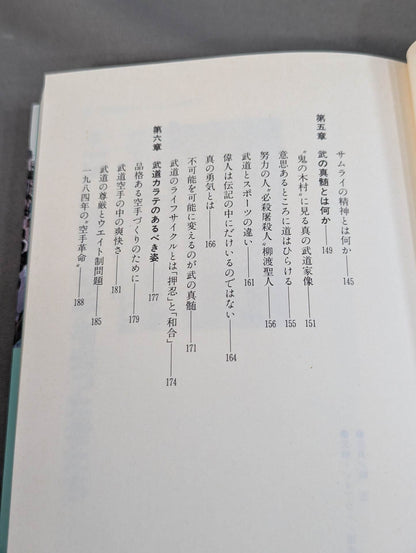 サムライの精神とは何か——145
第五章　武の真髄とは何か　149
〝鬼の木村〟に見る真の武道家像——151
意思あるところに道はひらける——155
努力の人〝必殺屠殺人〟柳渡聖人——156
武道とスポーツの違い——161
偉人は伝記の中にだけいるのではない——164
真の勇気とは——166
不可能を可能に変えるのが武の真髄——171
武道のライフサイクルとは「押忍」と「和合」——174
第六章　武道カラテのあるべき姿　177
品格ある空手づくりのために——179
武道空手の中の爽快さ——181
武道の尊厳とウエイト制問題——185
一九八四年の〝空手革命〟——188